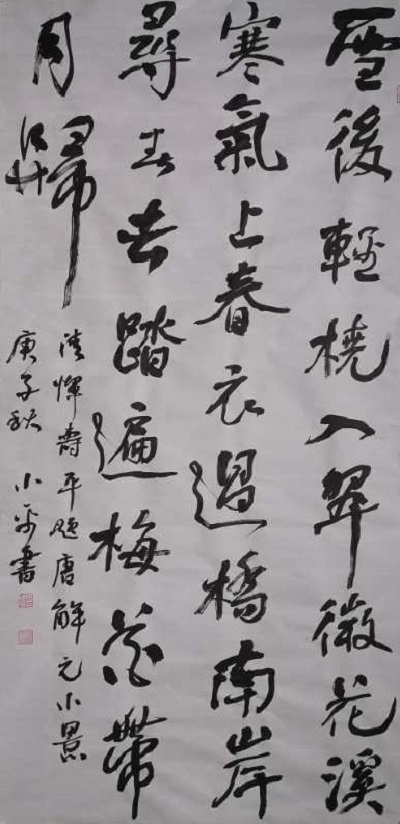 雪後輕橈入翠微花溪
寒氣上春衣過橋南岸
尋春去踏遍梅花帶
月歸
清惲壽平題唐解元小景
庚子秋 小平書